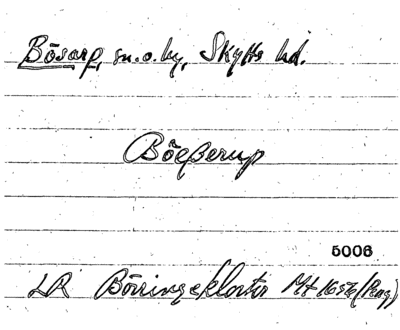 Bösarp, sn. o. by, Skytts hd.
Böeßerup
5006
LR Börringekloster Mt 1656 (Peng)